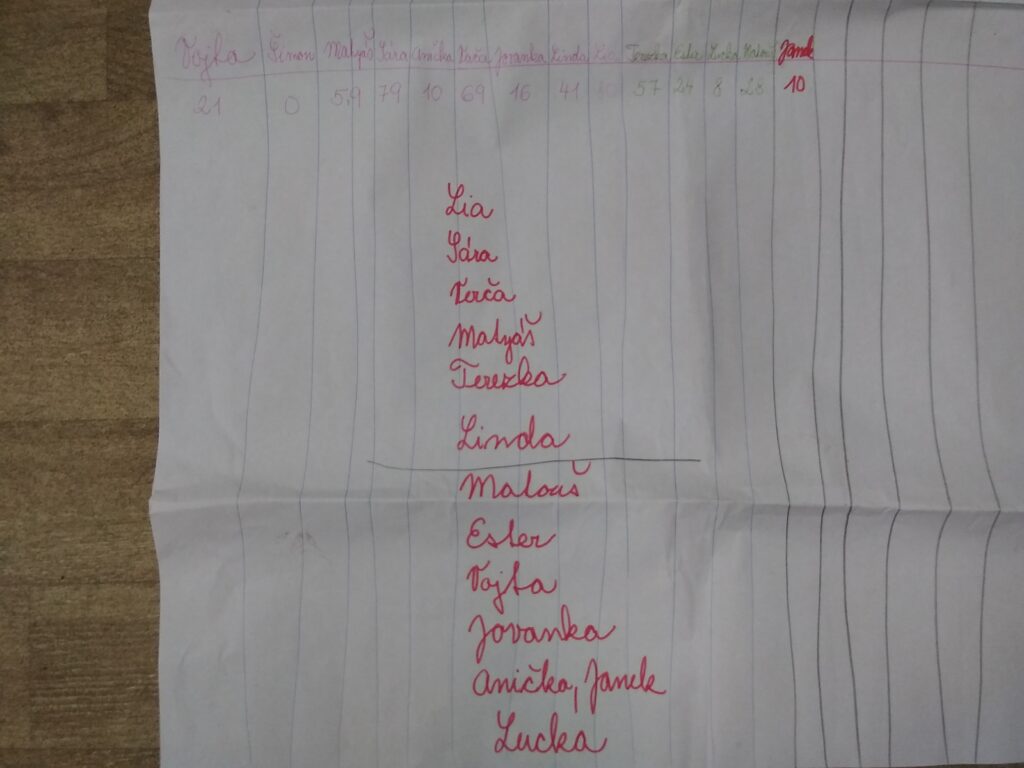 Vojta Šimon Matyáš Sára Anička Verča Jovanka Linda Lia Terezka Ester Lucka Matouš Janek
21 0 59 79 10 69 16 41 57 24 8 28 10
Lia
Sára
Verča
Matyáš
Terezka
Linda
Matouš
Ester
Vojta
Jovanka
Anička, Janek
Lucka